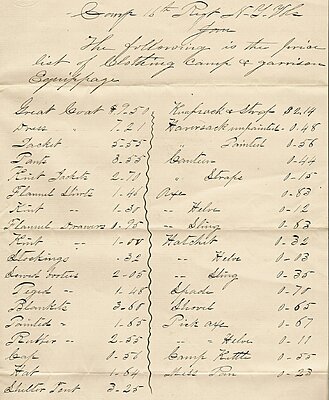 Camp 6th Regt N.J. Vls
The following is the price
list of Clothing Camp & garrison
Equippage
Great Coat $9.50
Dress " 7.21
Jacket 5-55
Pants 3-55
Knit Jackets 2-70
Flannel Shirts 1-46
Knit " 1-30
Flannel Drawers 0.95
Knit "
Stockings -32
Sewed Bootees 2-05
Peged " 1-48
Blankets 3-60
Painted " 1-65
Rubber " 2-55
Cap 0-56
Hat 1-64
Shelter Tent 3-25
Knapsack & Straps $2.14
Haversack unpainted - 0-48
" Painted 0-56
Canteen 0-44
" Straps 0-15
Axe 0-83
" Helve 0-12
" Sling 0-63
Hatchet 0-32
" Helve 0-03
" Sling 0-35
Spade 0-70
Shovel 0-65
Pick axe 0-67
" " Helve 0-11
Camp Kettle 0-55
Mess Pan 0-23